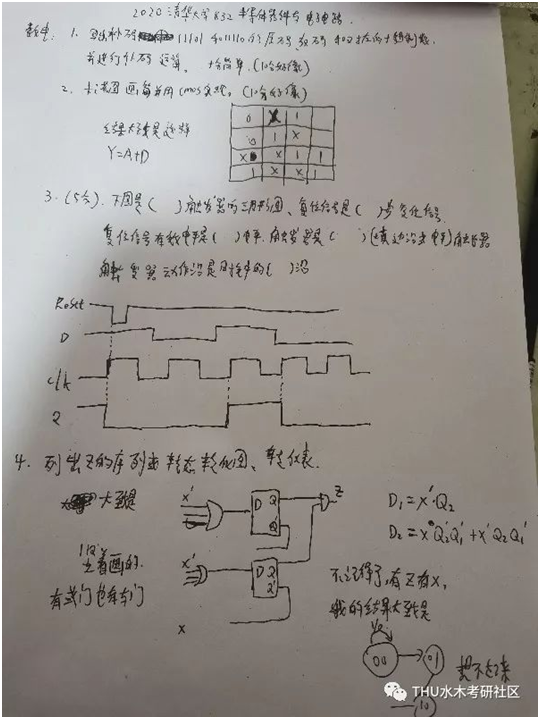 2020 清华大学 832 半导体器件与电子电路
数电: 1. 写出补码 11101 和 101110 的原码 反码 和对应的十进制数,
并进行补码运算. (10分好像)
2. 卡诺图画简并用 cmos 实现. (10分好像)
0 X 1
0 1 X
X 0 X 1 1
1 X X
结果大致是这样
Y=A+D
3. (5分). 下图是( )触发器的工作波形图、复位信号是( )步复位信号.
复位信号有效电平是( )电平. 触发器是( )(填边沿或电平)触发器
触发器动作沿是时钟的( )沿
Reset
D
clk
Q
4. 列出Z的序列画状态转化图、转化表.
大致是
X' D Q Q' Z
D1 = X'·Q2
D2 = X'Q2'Q1' + X'Q2Q1'
着画的.
有或门也有与门
X' D Q Q'
X
不记得了, 有Z有X,
我的结果大致是
00 01
10
想不起来
THU水木考研社区